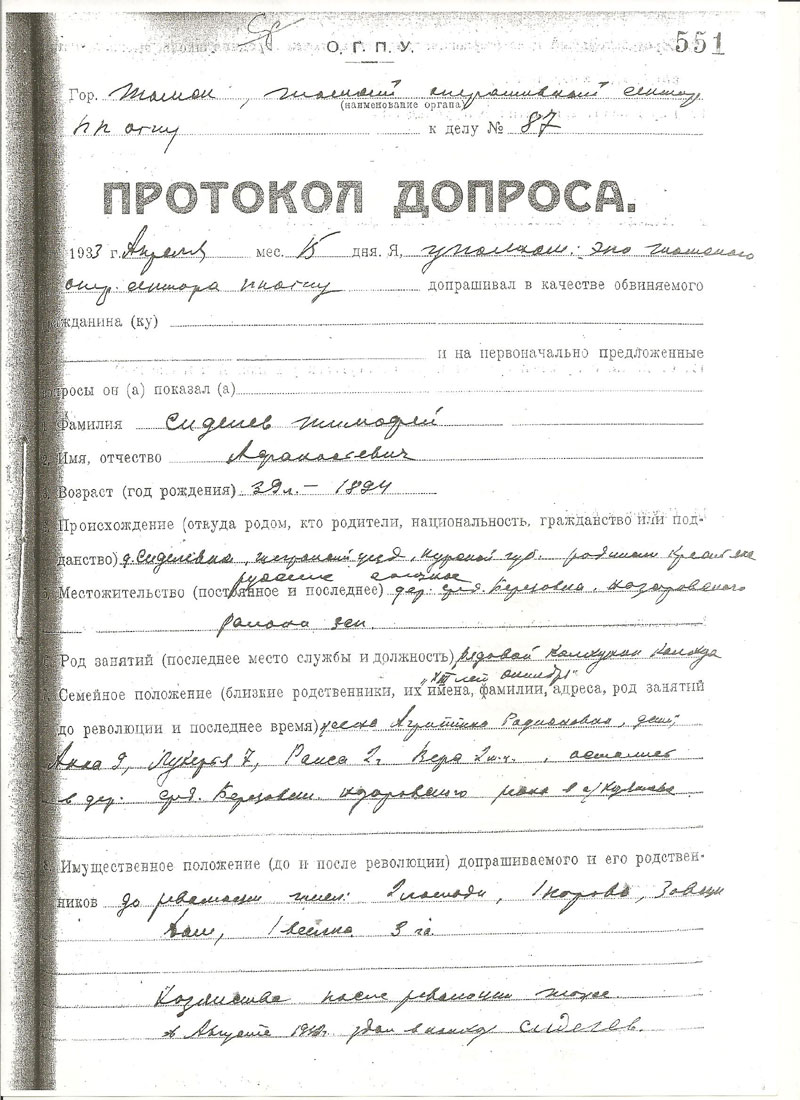 О. Г. П. У.
551
Гор. Томск, Томский оперативный сектор
(наименование органа)
ПП ОГПУ к делу № 87
ПРОТОКОЛ ДОПРОСА.
1933 г. Апреля мес. 15 дня. Я, уполном. ЭКО Томского
опер. сектора ПП ОГПУ допрашивал в качестве обвиняемого
гражданина (ку)
и на первоначально предложенные
вопросы он (а) показал (а)
1. Фамилия Сиделев Тимофей
2. Имя, отчество Афанасьевич
3. Возраст (год рождения) 39 л. – 1894
4. Происхождение (откуда родом, кто родители, национальность, гражданство или под-
данство) д. Сиделевка, уезд, Курской губ. родители крестьяне
русские
5. Местожительство (постоянное и последнее) дер. сред. Березовка
района ЗСК
6. Род занятий (последнее место службы и должность) рядовой колхозник колхоза
"XIII лет октября"
7. Семейное положение (близкие родственники, их имена, фамилии, адреса, род занятий
до революции и последнее время) жена Агриппина Родионовна, дети:
Анна 9, Лукерья 7, Раиса 2. Вера 2 м-ц.
в дер. сред. Березовки
8. Имущественное положение (до и после революции) допрашиваемого и его родствен-
ников до революции имел: 2 лошади, 1 корова, 3 овцы
дом, 3 га.
Хозяйство после революции тоже.
в Августе сдал в колхоз Сиделев.